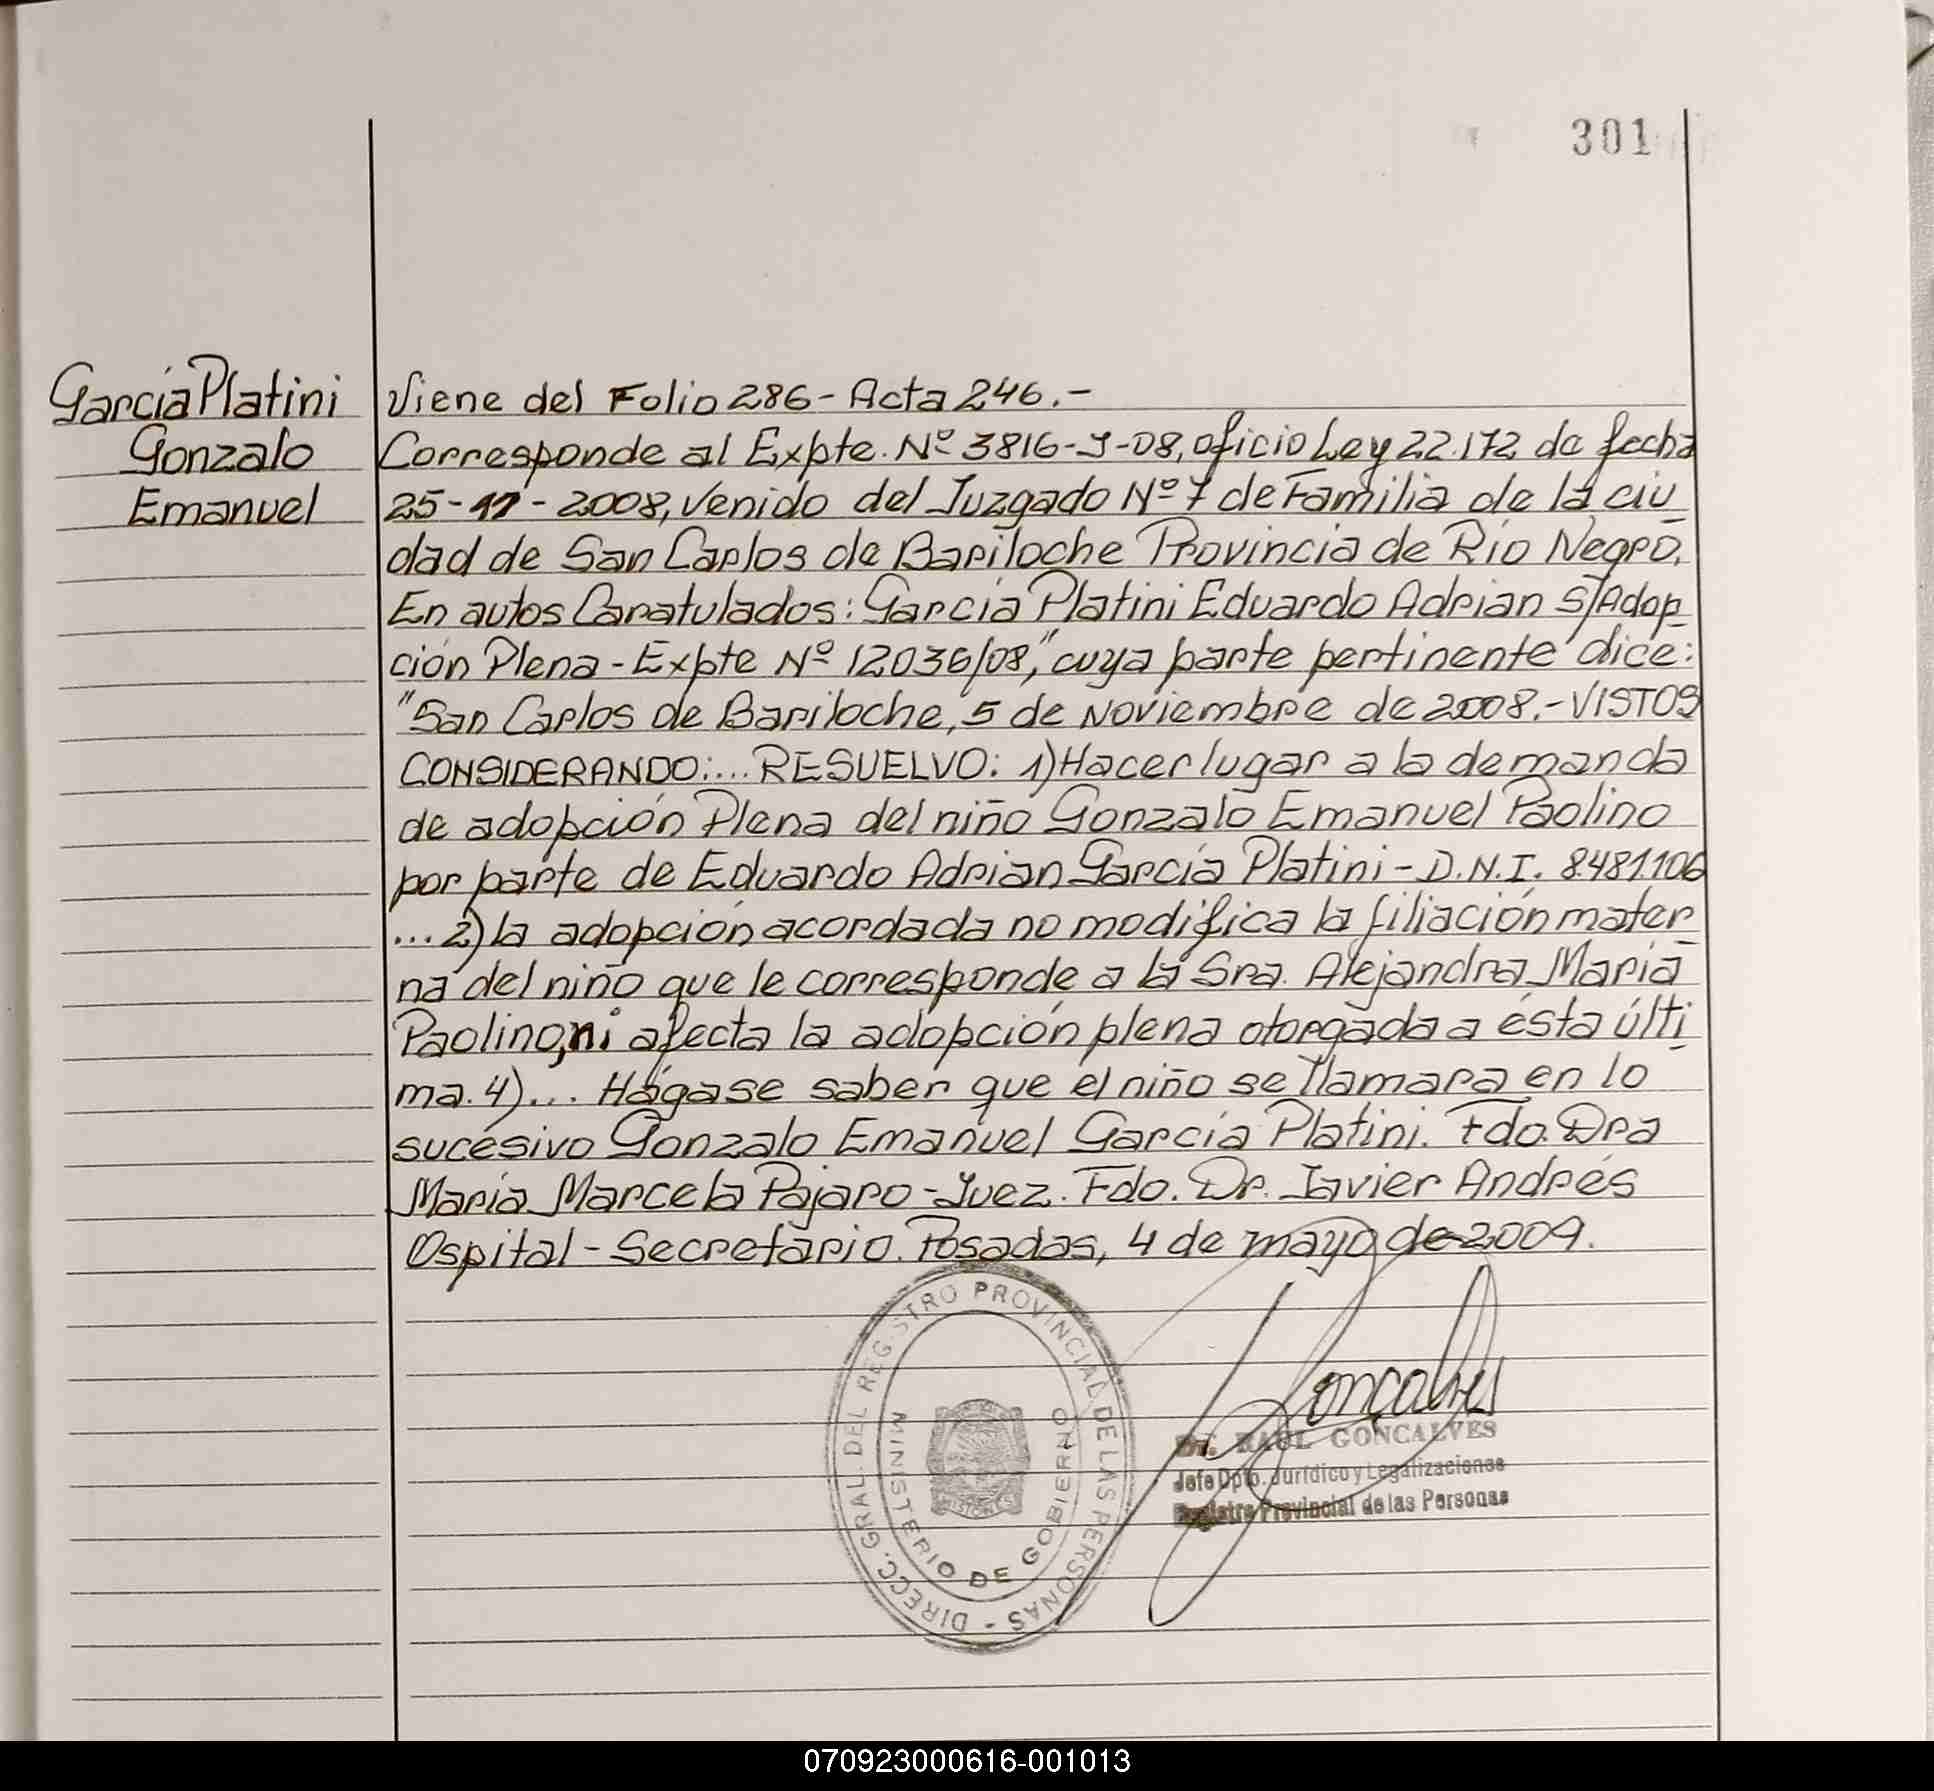 301
García Platini
Gonzalo
Emanuel
Viene del Folio 286 - Acta 246.-
Corresponde al Expte. Nº 3816-J-08, oficio Ley 22.172 de fecha
25-11-2008, venido del Juzgado Nº 7 de Familia de la ciu
dad de San Carlos de Bariloche Provincia de Río Negro.
En autos Caratulados: García Platini Eduardo Adrian S/Adop
ción Plena - Expte Nº 12036/08," cuya parte pertinente dice:
"San Carlos de Bariloche, 5 de Noviembre de 2008.- VISTOS
CONSIDERANDO:... RESUELVO: 1) Hacer lugar a la demanda
de adopción Plena del niño Gonzalo Emanuel Paolino
por parte de Eduardo Adrian García Platini - D.N.I. 8.481.106
... 2) la adopción acordada no modifica la filiación mater
na del niño que le corresponde a la Sra. Alejandra María
Paolino, ni afecta la adopción plena otorgada a ésta últi
ma. 4)... Hágase saber que el niño se llamara en lo
sucesivo Gonzalo Emanuel García Platini. Fdo. Dra
María Marcela Pajaro - Juez. Fdo. Dr. Javier Andrés
Ospital - Secretario. Posadas, 4 de mayo de 2009.
DIRECC. GRAL. DEL REGISTRO PROVINCIAL DE LAS PERSONAS -
MINISTERIO DE GOBIERNO
MISIONES
Goncalves
Dr. RAUL GONCALVES
Jefe Dpto. Jurídico y Legalizaciones
Registro Provincial de las Personas
070923000616-001013